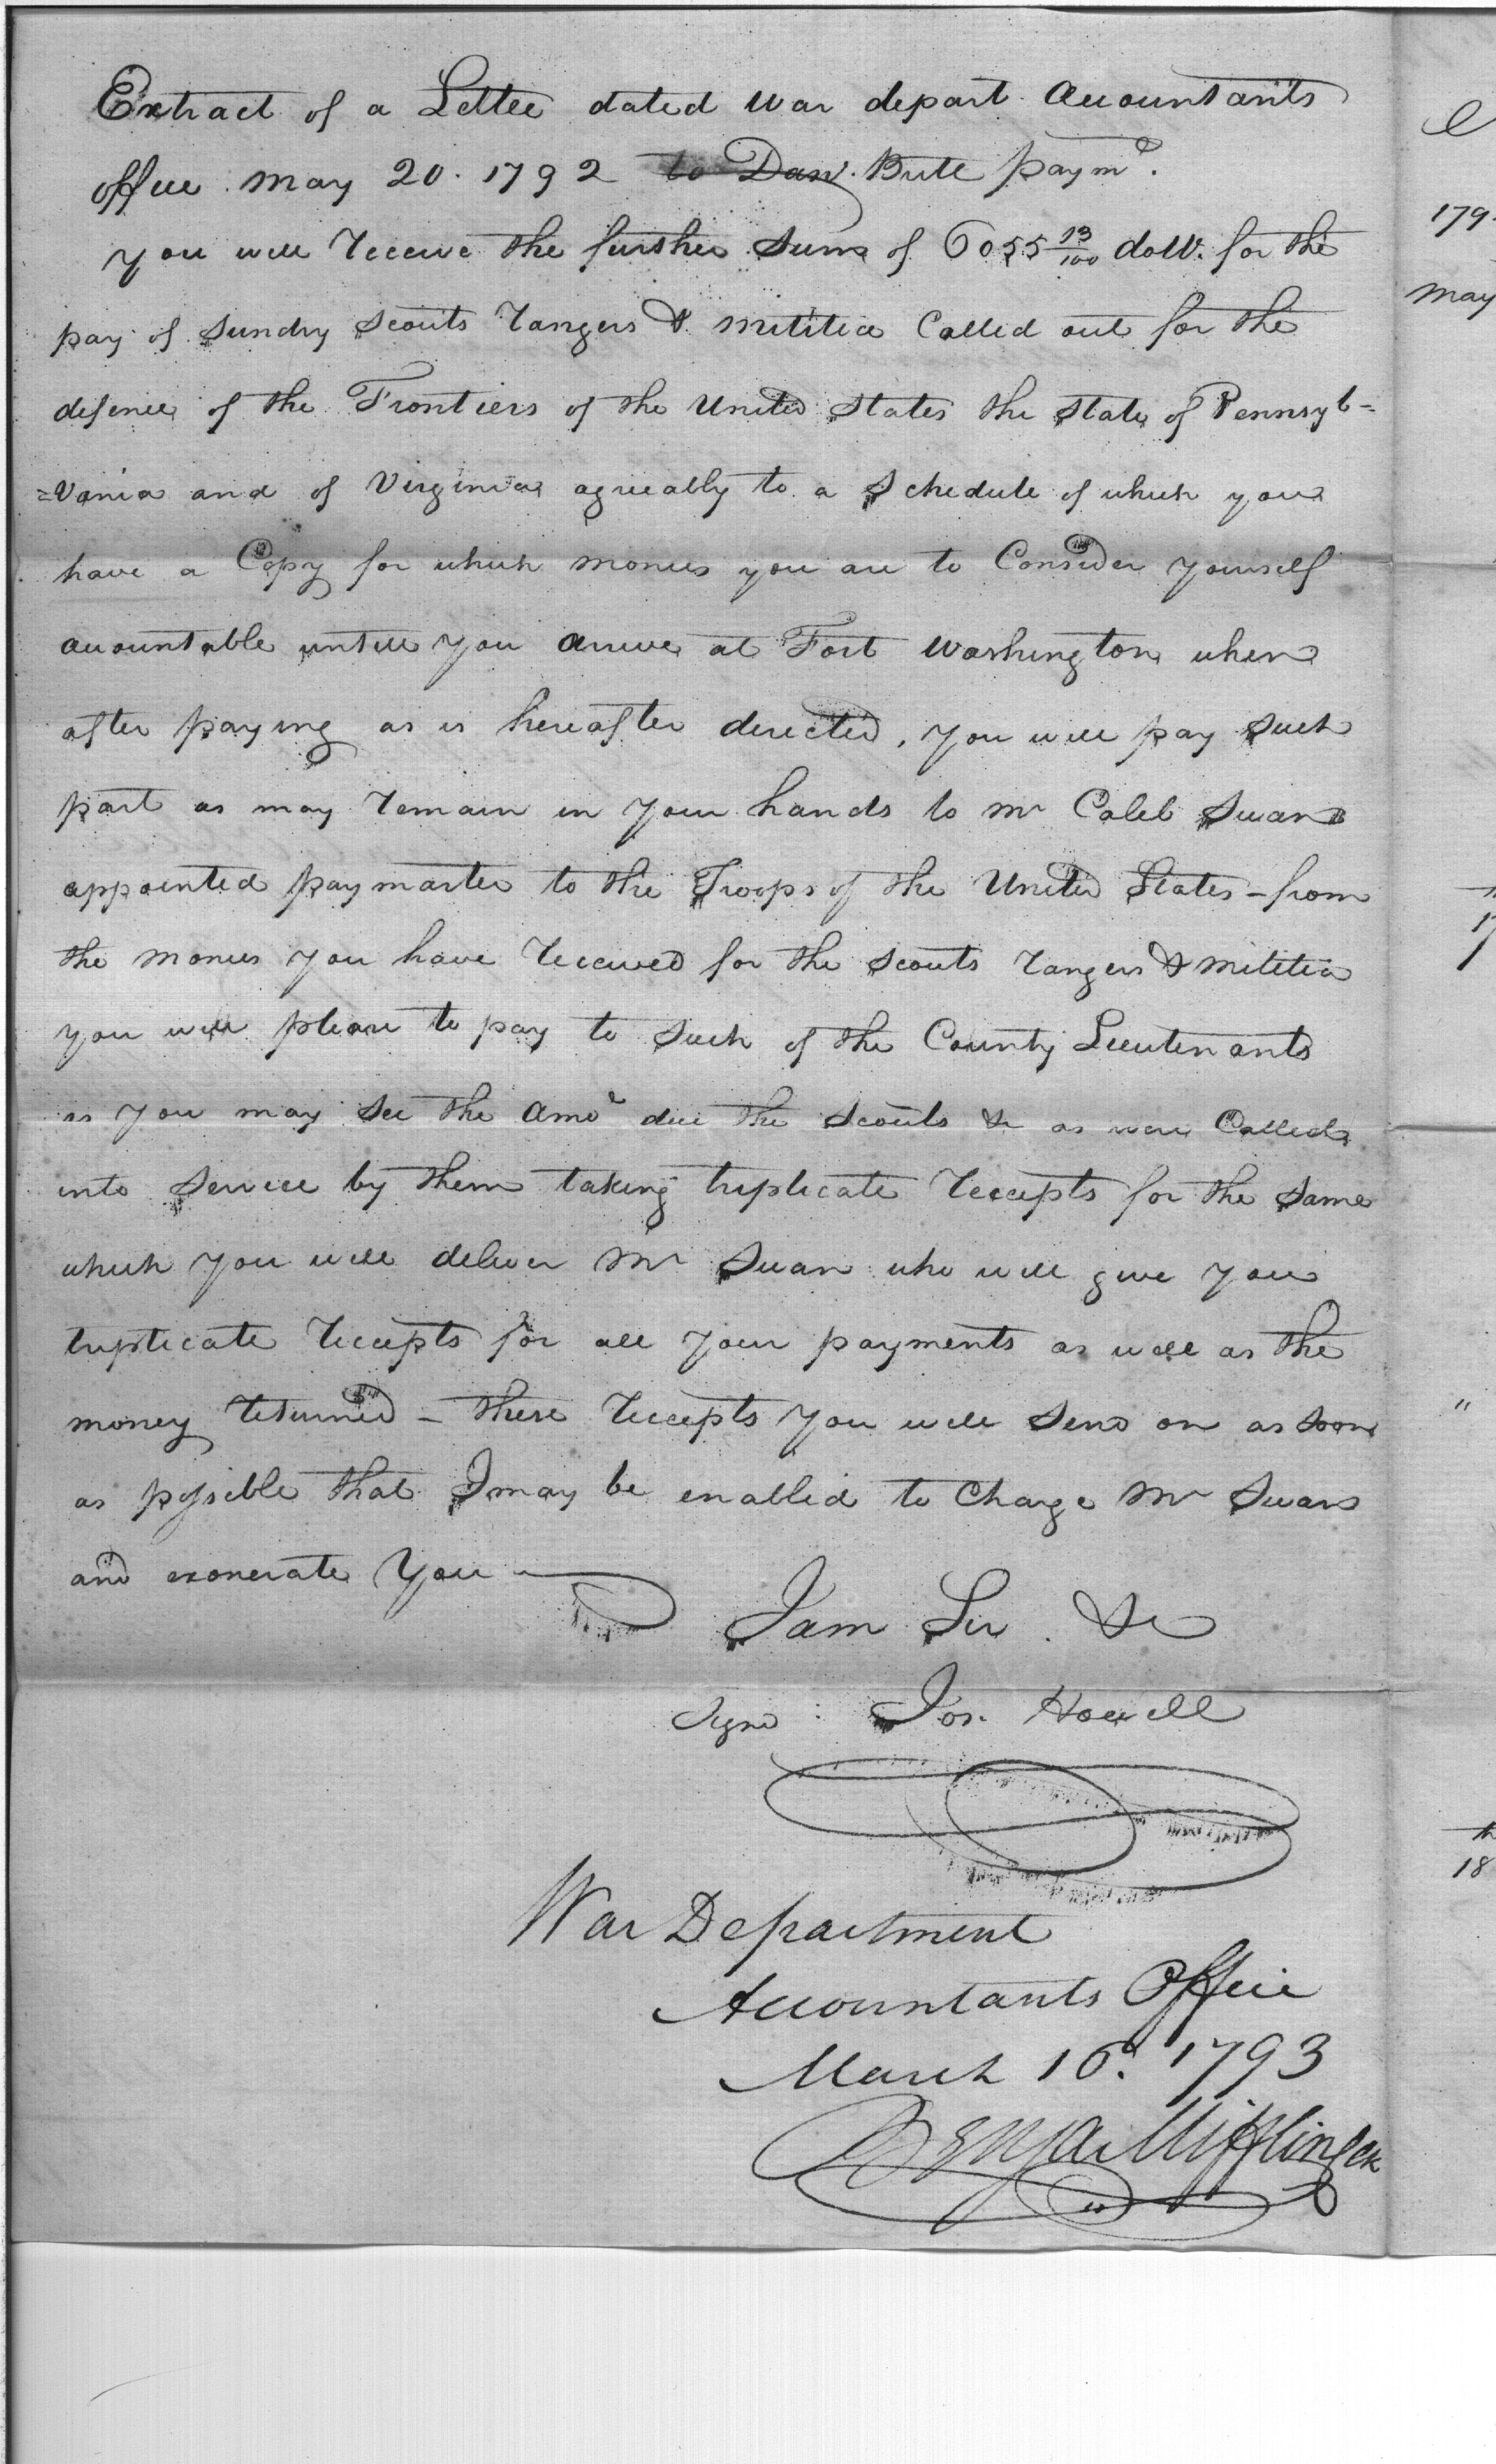 Extract of a Letter dated War depart Accountants
office May 20. 1792 to Danl. Britt paymr.
you will receive the further Sum of 6055 13/100 dolls. for the
pay of Sundry Scouts rangers & militia Called out for the
defence of the Frontiers of the United States the State of Pennsyl=
=vania and of Virginia agreeably to a Schedule of which you
have a Copy for which monies you are to Consider yourself
accountable untill you arrive at Fort Washington when
after paying as is hereafter directed, you will pay Such
part as may remain in your hands to Mr Caleb Swan
appointed paymaster to the Troops of the United States - from
the monies you have received for the Scouts rangers & militia
you will please to pay to Such of the County Lieutenants
as you may See the amot due the Scouts &c as were Called
into Service by them taking triplicate receipts for the Same
which you will deliver Mr Swan who will give you
triplicate receipts for all your payments as well as the
money returned - these receipts you will Send on as Soon
as possible that I may be enabled to Charge Mr Swan
and exonerate You
I am Sir. &c
Signd: Jos. Howell
War Department
Accountants Office
March 16. 1793
Benja Mifflin Ck
179
May
"
18